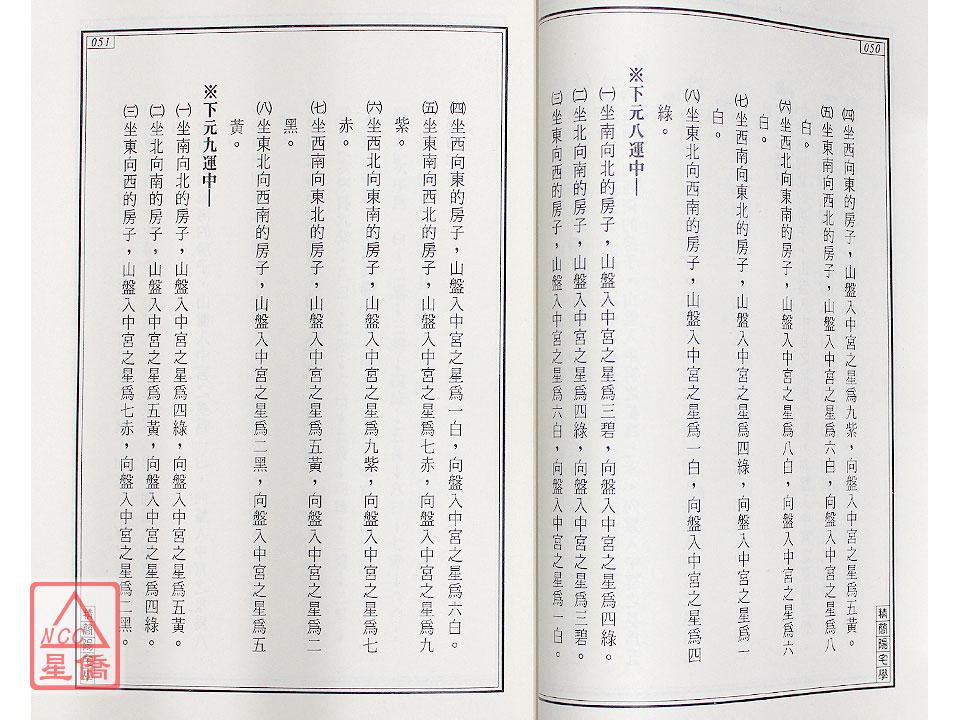 050
㈣坐西向東的房子，山盤入中宮之星爲九紫，向盤入中宮之星爲五黃。
㈤坐東南向西北的房子，山盤入中宮之星爲六白，向盤入中宮之星爲八
白。
㈥坐西北向東南的房子，山盤入中宮之星爲八白，向盤入中宮之星爲六
白。
㈦坐西南向東北的房子，山盤入中宮之星爲四綠，向盤入中宮之星爲一
白。
㈧坐東北向西南的房子，山盤入中宮之星爲一白，向盤入中宮之星爲四
綠。
※下元八運中—
㈠坐南向北的房子，山盤入中宮之星爲三碧，向盤入中宮之星爲四綠。
㈡坐北向南的房子，山盤入中宮之星爲四綠，向盤入中宮之星爲三碧。
㈢坐東向西的房子，山盤入中宮之星爲六白，向盤入中宮之星爲一白。
陽宅學
051
㈣坐西向東的房子，山盤入中宮之星爲一白，向盤入中宮之星爲六白。
㈤坐東南向西北的房子，山盤入中宮之星爲七赤，向盤入中宮之星爲九
紫。
㈥坐西北向東南的房子，山盤入中宮之星爲九紫，向盤入中宮之星爲七
赤。
㈦坐西南向東北的房子，山盤入中宮之星爲五黃，向盤入中宮之星爲二
黑。
㈧坐東北向西南的房子，山盤入中宮之星爲二黑，向盤入中宮之星爲五
黃。
※下元九運中—
㈠坐南向北的房子，山盤入中宮之星爲四綠，向盤入中宮之星爲五黃。
㈡坐北向南的房子，山盤入中宮之星爲五黃，向盤入中宮之星爲四綠。
㈢坐東向西的房子，山盤入中宮之星爲七赤，向盤入中宮之星爲二黑。
陽宅學
NCC
星僑